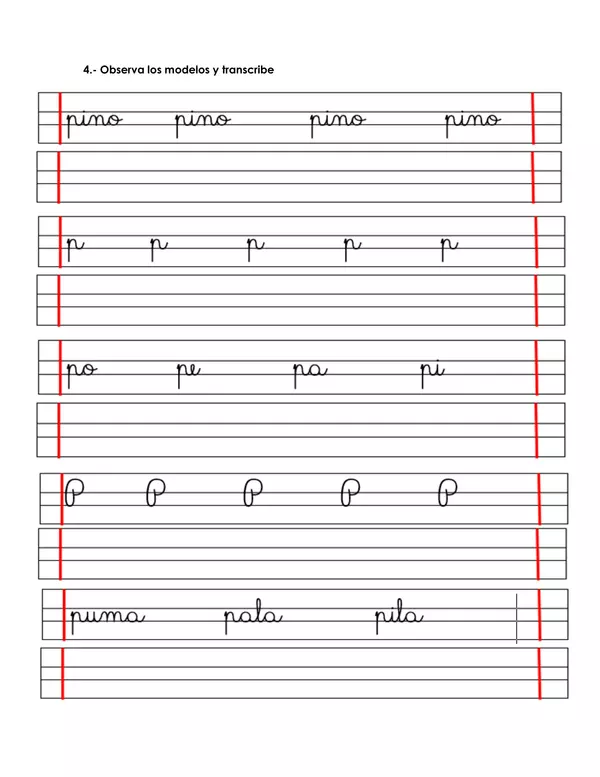 4.- Observa los modelos y transcribe
pino pino pino pino
p p p p p
po pe pa pi
P P P P P
puma pala pila